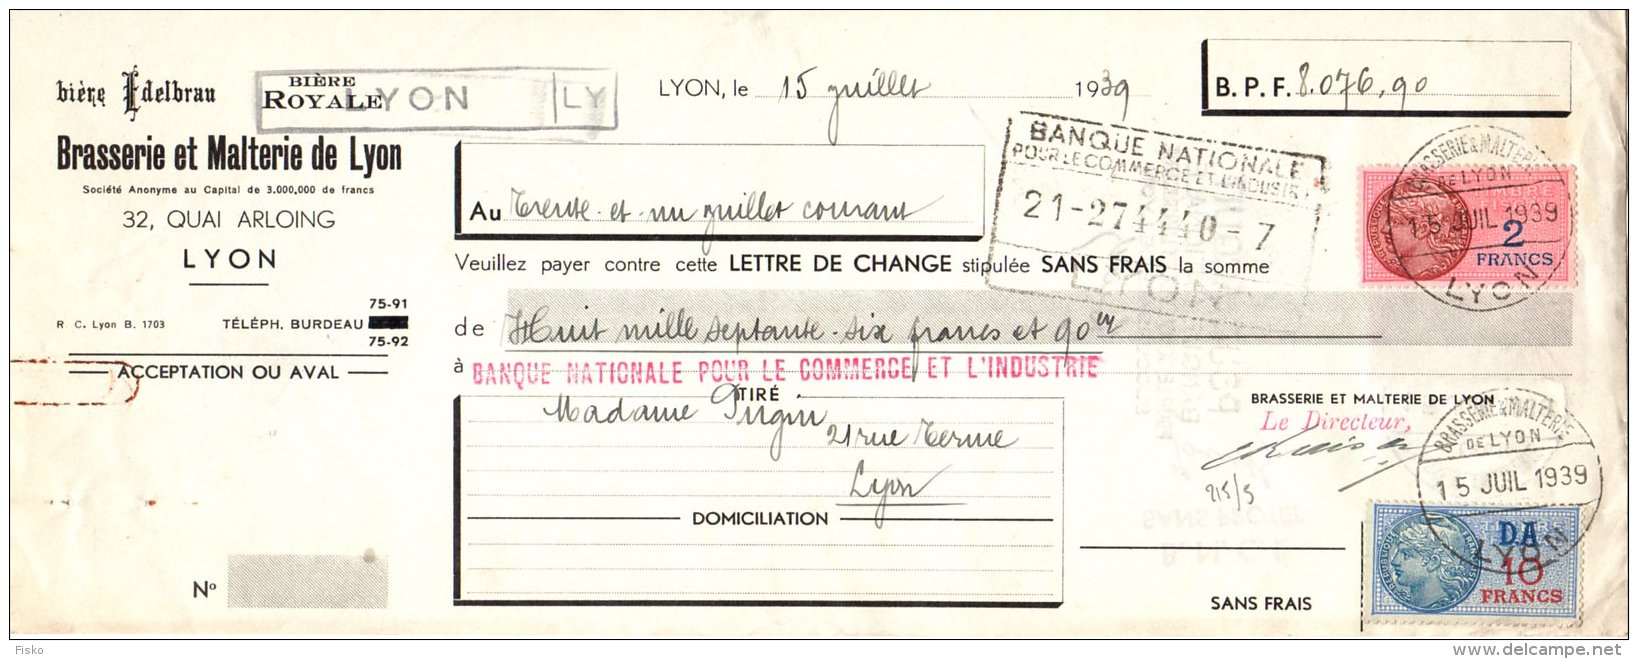 bière Edelbrau
BIÈRE
ROYALE
LYON LY
Brasserie et Malterie de Lyon
Société Anonyme au Capital de 3.000,000 de francs
32, QUAI ARLOING
LYON
75-91
R. C. Lyon B. 1703 TÉLÉPH. BURDEAU
75-92
ACCEPTATION OU AVAL
Nº
LYON, le 15 juillet 1939
B. P. F. 8.076,90
BANQUE NATIONALE
POUR LE COMMERCE ET L'INDUSTRIE
21-274440-7
LYON
Au Trente-et-un juillet courant
Veuillez payer contre cette LETTRE DE CHANGE stipulée SANS FRAIS la somme
de Huit mille septante-six francs et 90
à BANQUE NATIONALE POUR LE COMMERCE ET L'INDUSTRIE
TIRÉ
Madame Pugin
21 rue Terme
Lyon
DOMICILIATION
BRASSERIE & MALTERIE
DE LYON
15 JUIL 1939
LYON
2
FRANCS
BRASSERIE ET MALTERIE DE LYON
Le Directeur,
215/5
BRASSERIE & MALTERIE
DE LYON
15 JUIL 1939
LYON
DA
10
FRANCS
SANS FRAIS
Fisko
www.delcampe.net